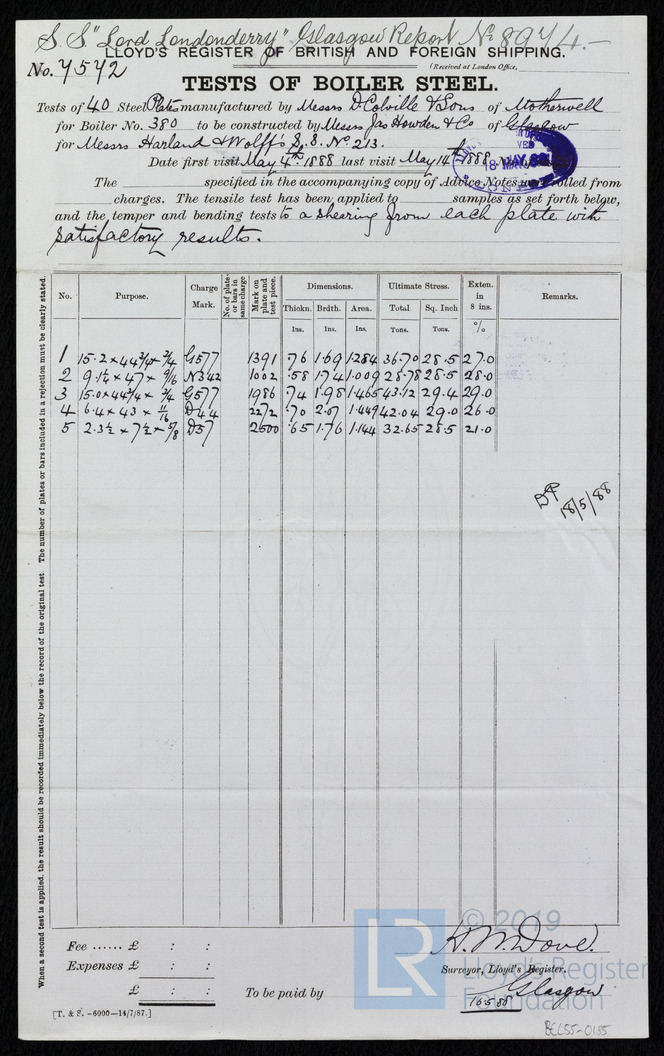 S. S. "Lord Londonderry" Glasgow Report No 8974.-
LLOYD'S REGISTER OF BRITISH AND FOREIGN SHIPPING.
No. 7572
(Received at London Office,
TESTS OF BOILER STEEL.
Tests of 40 Steel Plates manufactured by Messrs D Colville & Sons of Motherwell
for Boiler No. 380 to be constructed by Messrs Jas Howden & Co of Glasgow
for Messrs Harland & Wolff's S. S. No. 213.
Date first visit May 4th. 1888 last visit May 14th 1888
18 MAY 88
The specified in the accompanying copy of Advice Notes were rolled from
charges. The tensile test has been applied to samples as set forth below,
and the temper and bending tests to a shearing from each plate with
satisfactory results.
No. Purpose. Charge Mark. No. of plates or bars in same charge Mark on plate and test piece. Dimensions. Ultimate Stress. Exten. in 8 ins. Remarks.
Thickn. Brdth. Area. Total Sq. Inch
Ins. Ins. Ins. Tons. Tons. %
1 15.2 × 44 3/4 × 3/4 G577 1391 .76 1.69 1.284 36.70 28.5 27.0
2 9.1 1/4 × 47 × 9/16 N342 1002 .58 1.74 1.009 28.78 28.5 28.0
3 15.0 × 44 3/4 × 3/4 G577 1986 .74 1.98 1.465 43.12 29.4 29.0
4 6.4 × 43 × 11/16 D44 2272 .70 2.07 1.449 42.04 29.0 26.0
5 2.3 1/2 × 7 1/2 × 5/8 D37 2600 .65 1.76 1.144 32.65 28.5 21.0
18/5/88
When a second test is applied, the result should be recorded immediately below the record of the original test. The number of plates or bars included in a rejection must be clearly stated.
Fee ...... £ : :
Expenses £ : :
£ : :
To be paid by
H. M. Dove.
Surveyor, Lloyd's Register.
Glasgow
16.5.88
[T. & S. -6000-14/7/87.]
LR
© 2019
Lloyd's Register
Foundation
BEL55-0155